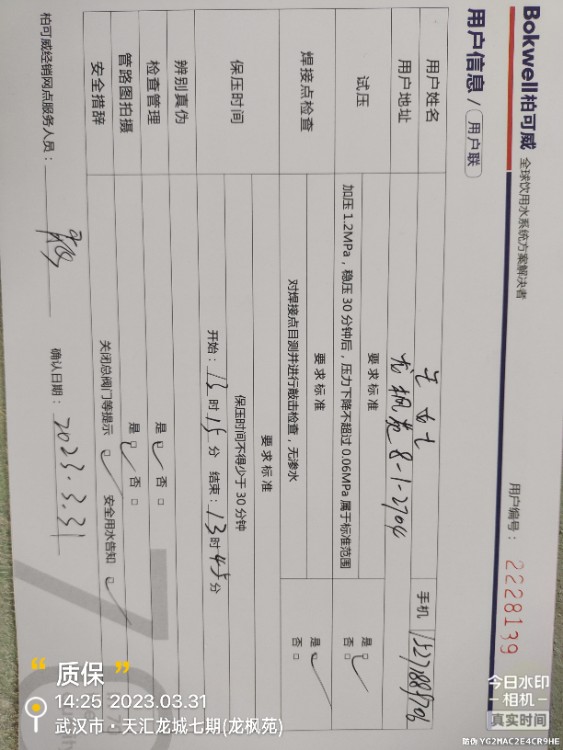 Bokwell柏可威 全球饮用水系统方案解决者
用户编号：2228139
用户信息 / 用户联
用户姓名 王女士 手机
用户地址 龙枫苑8-1-2704
试压 要求标准
加压 1.2MPa，稳压 30 分钟后，压力下降不超过 0.06MPa 属于标准范围 是□ 否□
焊接点检查 要求标准
对焊接点目测并进行敲击检查，无渗水 是□ 否□
保压时间 要求标准
保压时间不得少于 30 分钟
开始：13 时 15 分 结束：13 时 45 分
辨别真伪
检查管理 是□ 否□
管路图拍摄 是□ 否□
安全措辞 关闭总阀门等提示 安全用水告知
柏可威经销网点服务人员：
确认日期：2023.3.31
“质保”
14:25 2023.03.31
武汉市·天汇龙城七期(龙枫苑)
今日水印
-相机-
真实时间
防伪 YG2MAC2E4CR9HE